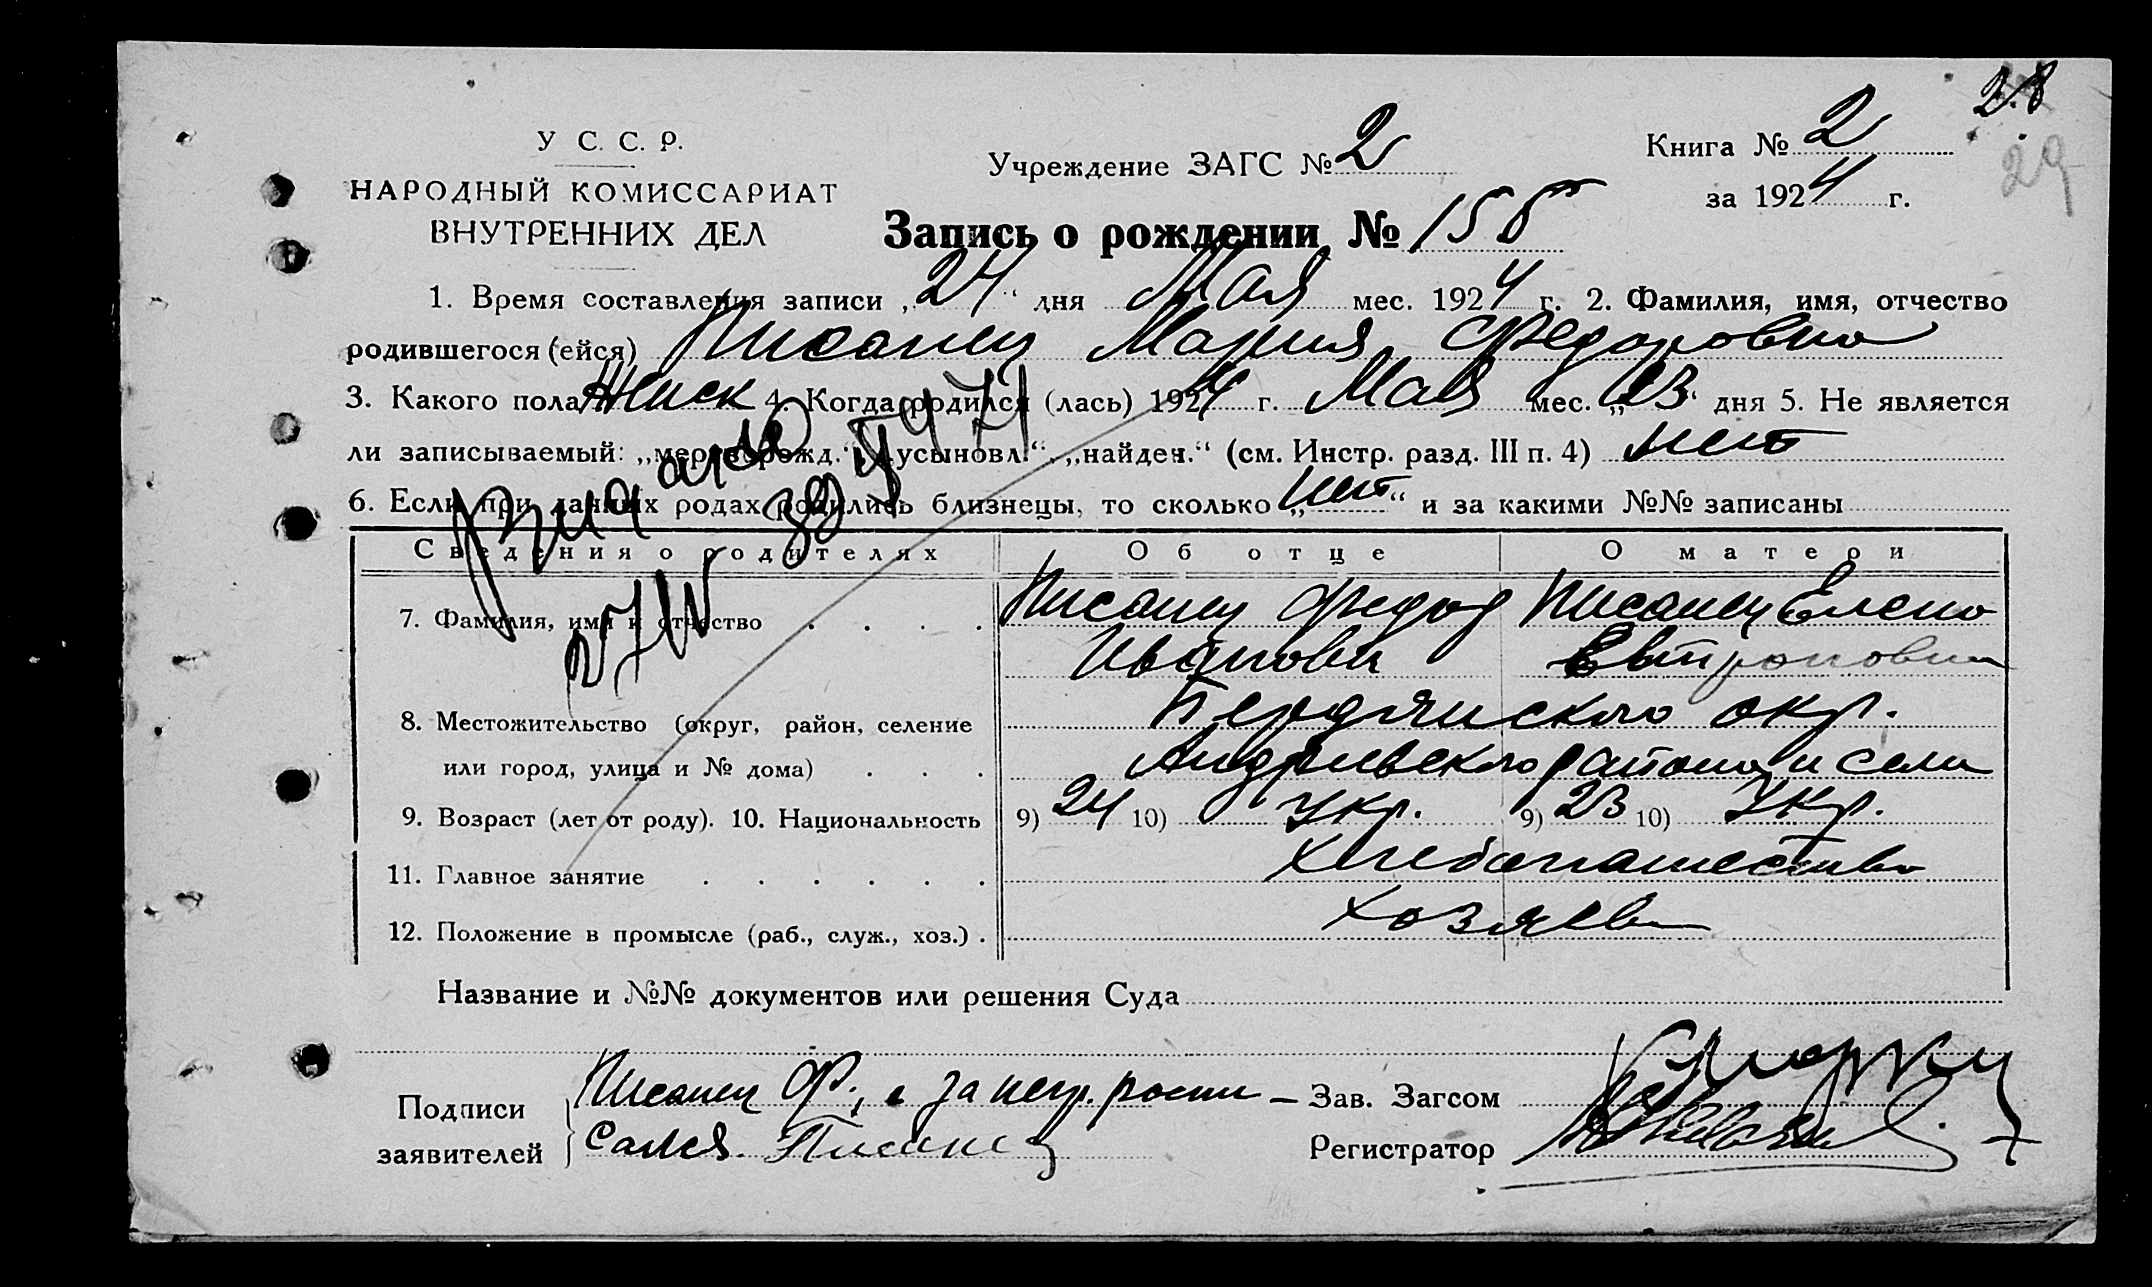 28
29
У. С. С. Р.
НАРОДНЫЙ КОМИССАРИАТ
ВНУТРЕННИХ ДЕЛ
Учреждение ЗАГС № 2
Книга № 2
за 1924 г.
Запись о рождении № 155
1. Время составления записи „24“ дня Мая мес. 1924 г. 2. Фамилия, имя, отчество
родившегося (ейся) Писанец Мария Федоровна
3. Какого пола Женск 4. Когда родился (лась) 1924 г. Мая мес. „23“ дня 5. Не является
ли записываемый: „мертворожд.“, „усыновл.“, „найден.“ (см. Инстр. разд. III п. 4) нет
6. Если при данных родах родились близнецы, то сколько „нет“ и за какими №№ записаны
Сведения о родителях Об отце О матери
7. Фамилия, имя и отчество Писанец Федор Писанец Елена
Иванови Евтроповна
8. Местожительство (округ, район, селение Бердянского окр.
или город, улица и № дома) Андреевского района и села
9. Возраст (лет от роду). 10. Национальность 9) 24 10) Укр. 9) 23 10) Укр.
11. Главное занятие Хлебопашество
12. Положение в промысле (раб., служ., хоз.) хозяева
Название и №№ документов или решения Суда
Подписи заявителей Писанец Ф., а за негр. росп
Писанец
Зав. Загсом
Регистратор